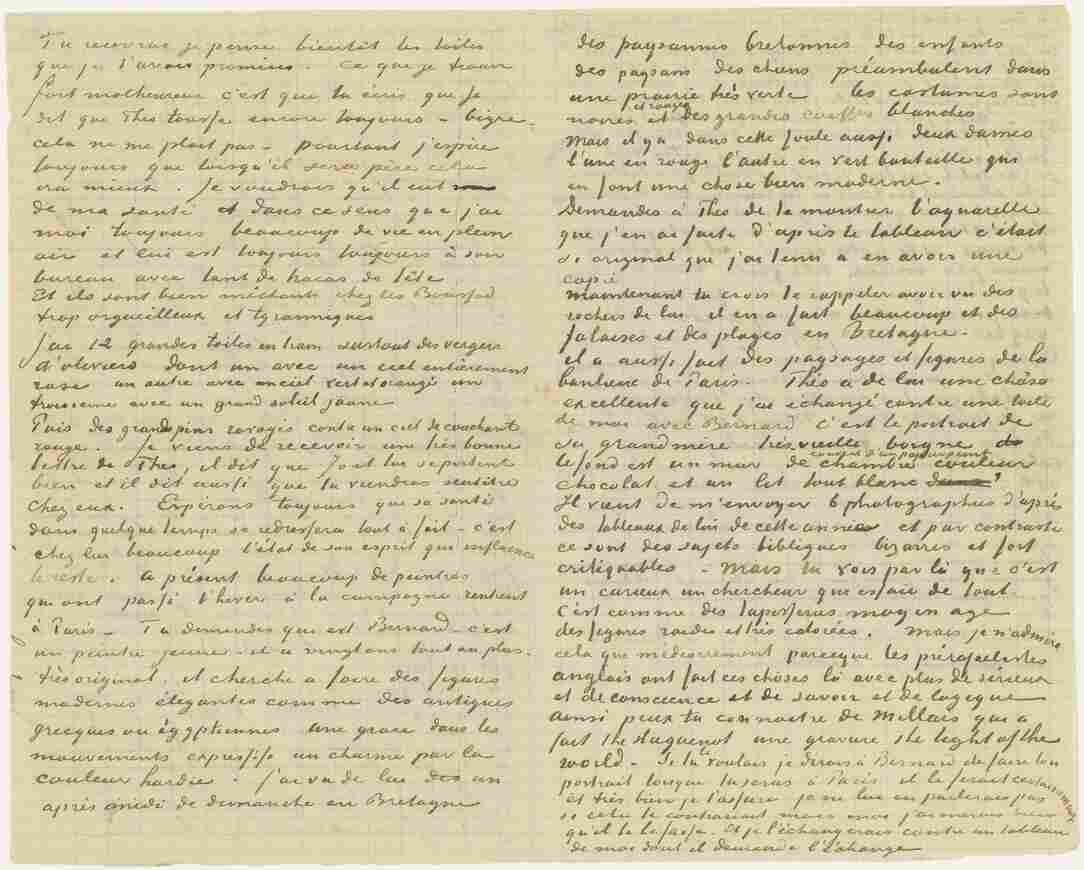 Tu recevras je pense bientôt les toiles
que je t'avais promises. Ce que je trouve
fort malheureux c'est que tu écris que Jo
dit que Theo tousse encore toujours – bigre –
cela ne me plait pas – pourtant j'espère
toujours que lorsqu'il sera père cela
ira mieux. Je voudrais qu'il eut
de ma santé et dans ce sens que j'ai
moi toujours beaucoup de vie en plein
air et lui est toujours toujours à son
bureau avec tant de tracas de tête
Et ils sont bien méchants chez les Boussod
trop orgueilleux et tyranniques
J'ai 12 grandes toiles en train surtout des vergers
d'oliviers dont un avec un ciel entièrement
rose un autre avec un ciel vert et orangé un
troisieme avec un grand soleil jaune
Puis des grands pins ravagés contre un ciel de couchant
rouge. Je viens de recevoir une très bonne
lettre de Theo, il dit que Jo et lui se portent
bien et il dit aussi que tu viendras sentôtre
chez eux. Espérons toujours que sa santé
dans quelque temps se redressera tout à fait – c'est
chez lui beaucoup l'état de son esprit qui influence
le reste. à présent beaucoup de peintres
qui ont passé l'hiver à la campagne rentrent
à Paris – Tu demandes qui est Bernard – c'est
un peintre jeune – il a vingt ans tout au plus –
très original, il cherche à faire des figures
modernes élégantes comme des antiques
grecques ou égyptiennes une grace dans les
mouvements expressifs un charme par la
couleur hardie. J'ai vu de lui d'un
après midi de dimanche en Bretagne
des paysannes bretonnes des enfants
des paysans des chiens préambulent dans
une prairie très verte les costumes sont
noires et rouges et des grandes coiffes blanches
mais il y a dans cette foule aussi deux dames
l'une en rouge l'autre en vert bouteille qui
en font une chose bien moderne.
Demandes à Theo de te montrer l'aquarelle
que j'en ai faite d'après le tableau c'était
si original que j'ai tenu à en avoir une
copie
maintenant tu crois te rappeler avoir vu des
rochers de lui il en a fait beaucoup et des
falaises et des plages en Bretagne.
il a aussi fait des paysages et figures de la
banlieue de Paris. Theo a de lui une chôse
excellente que j'ai échangé contre une toile
de moi avec Bernard c'est le portrait de
sa grandmère très vieille borgne
le fond est un mur de chambre couvert d'un papier peint couleur
chocolat et un lit tout blanc
Il vient de m'envoyer 6 photographies d'après
des tableaux de lui de cette année et par contraste
ce sont des sujets bibliques bizarres et fort
critiquables – mais tu vois par là que c'est
un curieux un chercheur qui essaie de tout.
C'est comme des tapisseries moyen age
des figures raides et très colorées. Mais je n'admire
cela que médiocrement parceque les préraphaelites
anglais ont fait ces choses là avec plus de sérieux
et de conscience et de savoir et de logique
ainsi peux tu connaitre de Millais qui a
fait the Huguenot une gravure the light of the
world – Si tu le voulais je dirais à Bernard de faire ton
portrait lorsque tu seras à Paris il le ferait certainement
et très bien je t'assure je ne lui en parlerais pas
si cela te contrariait mais moi j'aimerais bien
qu'il te le fasse. Et je l'échangerais contre un tableau
de moi dont il demande l'échange